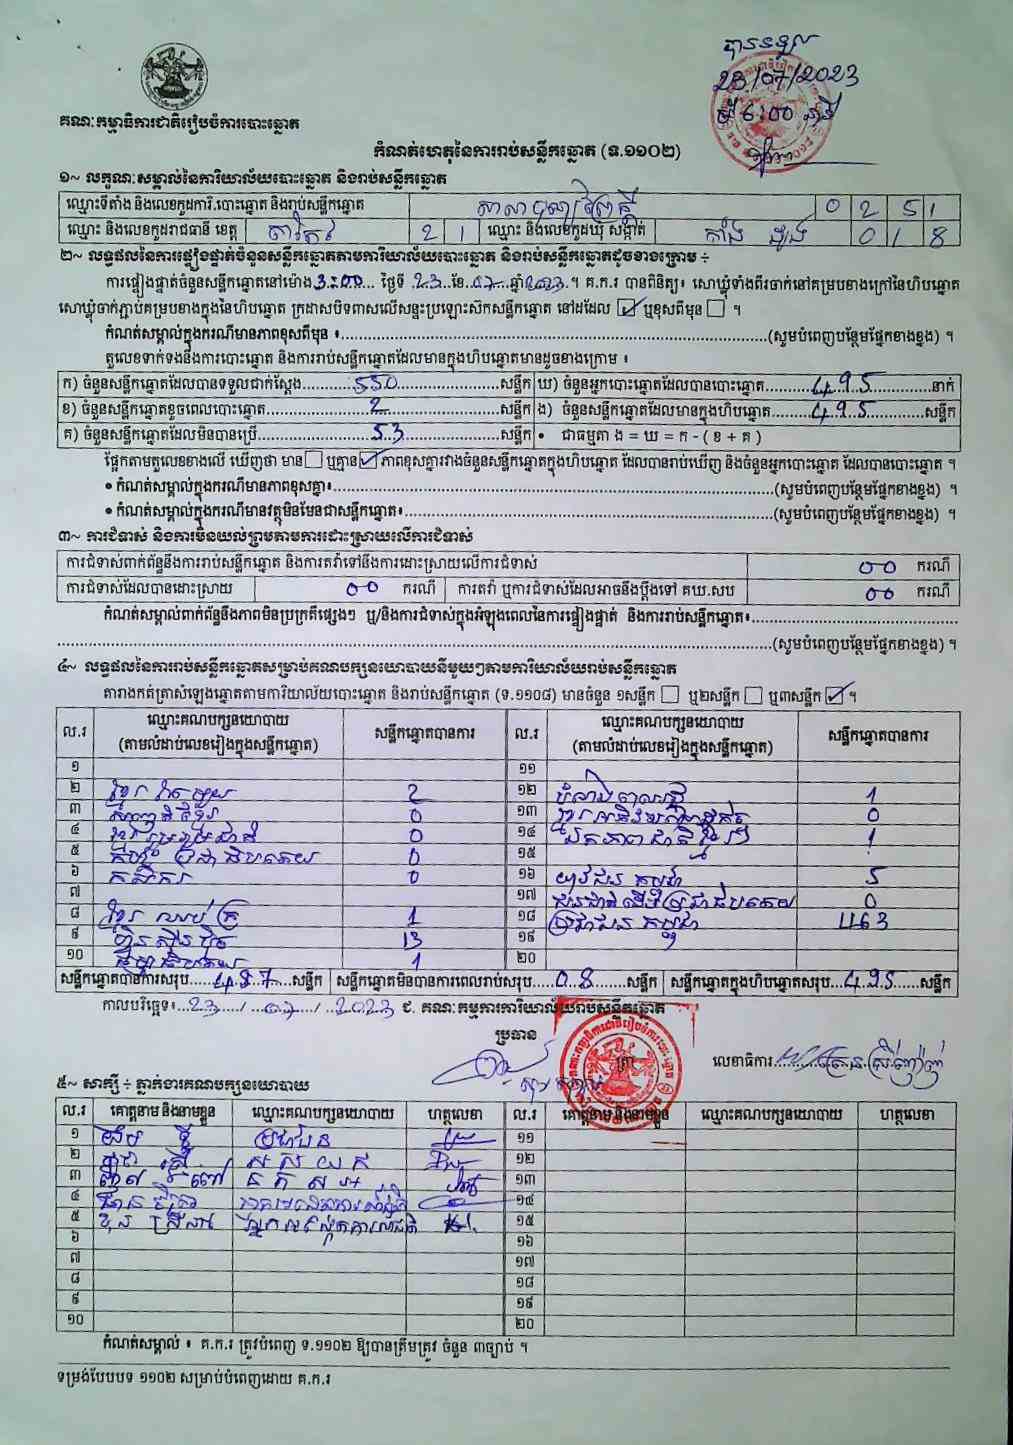 បានទទួល
23/07/2023
ម៉ោង 6:00 នាទី
គណៈកម្មាធិការជាតិរៀបចំការបោះឆ្នោត
កំណត់ហេតុនៃការរាប់សន្លឹកឆ្នោត (ទ.១១០២)
១~ លក្ខណៈសម្គាល់នៃការិយាល័យបោះឆ្នោត និងរាប់សន្លឹកឆ្នោត
ឈ្មោះទីតាំង និងលេខកូដការិ.បោះឆ្នោត និងរាប់សន្លឹកឆ្នោត 0 2 5 1
ឈ្មោះ និងលេខកូដរាជធានី ខេត្ត តាកែវ 2 1 ឈ្មោះ និងលេខកូដឃុំ សង្កាត់ 0 1 8
២~ លទ្ធផលនៃការផ្ទៀងផ្ទាត់ចំនួនសន្លឹកឆ្នោតតាមការិយាល័យបោះឆ្នោត និងរាប់សន្លឹកឆ្នោតដូចខាងក្រោម ÷
ការផ្ទៀងផ្ទាត់ចំនួនសន្លឹកឆ្នោតនៅម៉ោង 3:00 ថ្ងៃទី 23 ខែ 07 ឆ្នាំ 2023 ។ គ.ក.រ បានពិនិត្យ៖ សោឃ្លុំទាំងពីរចាក់នៅគម្របខាងក្រៅនៃហិបឆ្នោត
សោឃ្លុំចាក់ភ្ជាប់គម្របខាងក្នុងនៃហិបឆ្នោត ក្រដាសបិទពាសលើសន្ទះប្រឡោះស៊កសន្លឹកឆ្នោត នៅដដែល ☑ ឬខុសពីមុន ☐ ។
កំណត់សម្គាល់ក្នុងករណីមានភាពខុសពីមុន ៖ (សូមបំពេញបន្ថែមផ្នែកខាងខ្នង) ។
តួលេខទាក់ទងនឹងការបោះឆ្នោត និងការរាប់សន្លឹកឆ្នោតដែលមានក្នុងហិបឆ្នោតមានដូចខាងក្រោម ៖
ក) ចំនួនសន្លឹកឆ្នោតដែលបានទទួលជាក់ស្តែង 550 សន្លឹក ឃ) ចំនួនអ្នកបោះឆ្នោតដែលបានបោះឆ្នោត 495 នាក់
ខ) ចំនួនសន្លឹកឆ្នោតខូចពេលបោះឆ្នោត 2 សន្លឹក ង) ចំនួនសន្លឹកឆ្នោតដែលមានក្នុងហិបឆ្នោត 495 សន្លឹក
គ) ចំនួនសន្លឹកឆ្នោតដែលមិនបានប្រើ 53 សន្លឹក • ជាធម្មតា ង = ឃ = ក - ( ខ + គ )
ផ្អែកតាមតួលេខខាងលើ ឃើញថា មាន ☐ ឬគ្មាន ☑ ភាពខុសគ្នារវាងចំនួនសន្លឹកឆ្នោតក្នុងហិបឆ្នោត ដែលបានរាប់ឃើញ និងចំនួនអ្នកបោះឆ្នោត ដែលបានបោះឆ្នោត ។
• កំណត់សម្គាល់ក្នុងករណីមានភាពខុសគ្នា៖ (សូមបំពេញបន្ថែមផ្នែកខាងខ្នង) ។
• កំណត់សម្គាល់ក្នុងករណីមានវត្ថុមិនមែនជាសន្លឹកឆ្នោត៖ (សូមបំពេញបន្ថែមផ្នែកខាងខ្នង) ។
៣~ ការជំទាស់ និងការមិនយល់ព្រមតាមការដោះស្រាយលើការជំទាស់
ការជំទាស់ពាក់ព័ន្ធនឹងការរាប់សន្លឹកឆ្នោត និងការតវ៉ាទៅនឹងការដោះស្រាយលើការជំទាស់ 00 ករណី
ការជំទាស់ដែលបានដោះស្រាយ 00 ករណី ការតវ៉ា ឬការជំទាស់ដែលអាចនឹងប្តឹងទៅ គឃ.សប 00 ករណី
កំណត់សម្គាល់ពាក់ព័ន្ធនឹងភាពមិនប្រក្រតីផ្សេងៗ ឬ/និងការជំទាស់ក្នុងអំឡុងពេលនៃការផ្ទៀងផ្ទាត់ និងការរាប់សន្លឹកឆ្នោត៖
(សូមបំពេញបន្ថែមផ្នែកខាងខ្នង) ។
៤~ លទ្ធផលនៃការរាប់សន្លឹកឆ្នោតសម្រាប់គណបក្សនយោបាយនីមួយៗតាមការិយាល័យរាប់សន្លឹកឆ្នោត
តារាងកត់ត្រាសំឡេងឆ្នោតតាមការិយាល័យបោះឆ្នោត និងរាប់សន្លឹកឆ្នោត (ទ.១១០៨) មានចំនួន ១សន្លឹក ☐ ឬ២សន្លឹក ☐ ឬ៣សន្លឹក ☑ ។
ល.រ ឈ្មោះគណបក្សនយោបាយ (តាមលំដាប់លេខរៀងក្នុងសន្លឹកឆ្នោត) សន្លឹកឆ្នោតបានការ ល.រ ឈ្មោះគណបក្សនយោបាយ (តាមលំដាប់លេខរៀងក្នុងសន្លឹកឆ្នោត) សន្លឹកឆ្នោតបានការ
១ ១១
២ ខ្មែររួបរួម 2 ១២ 1
៣ 0 ១៣ 0
៤ 0 ១៤ ឯកភាពជាតិខ្មែរ 1
៥ 0 ១៥
៦ កសិករ 0 ១៦ យុវជនកម្ពុជា 5
៧ ១៧ 0
៨ ខ្មែរឈប់ក្រ 1 ១៨ ប្រជាជនកម្ពុជា 463
៩ ហ៊្វុនស៊ិនប៉ិច 13 ១៩
១០ 1 ២០
សន្លឹកឆ្នោតបានការសរុប 487 សន្លឹក សន្លឹកឆ្នោតមិនបានការពេលរាប់សរុប 08 សន្លឹក សន្លឹកឆ្នោតក្នុងហិបឆ្នោតសរុប 495 សន្លឹក
កាលបរិច្ឆេទ៖ 23 / 07 / 2023 ជ. គណៈកម្មការការិយាល័យរាប់សន្លឹកឆ្នោត
ប្រធាន ត្រា លេខាធិការ
៥~ សាក្សី ÷ ភ្នាក់ងារគណបក្សនយោបាយ
ល.រ គោត្តនាម និងនាមខ្លួន ឈ្មោះគណបក្សនយោបាយ ហត្ថលេខា ល.រ គោត្តនាម និងនាមខ្លួន ឈ្មោះគណបក្សនយោបាយ ហត្ថលេខា
១ ប្រជាជន ១១
២ ស ស យ ក ១២
៣ ១៣
៤ ១៤
៥ ១៥
៦ ១៦
៧ ១៧
៨ ១៨
៩ ១៩
១០ ២០
កំណត់សម្គាល់ ៖ គ.ក.រ ត្រូវបំពេញ ទ.១១០២ ឱ្យបានត្រឹមត្រូវ ចំនួន ៣ច្បាប់ ។
ទម្រង់បែបបទ ១១០២ សម្រាប់បំពេញដោយ គ.ក.រ